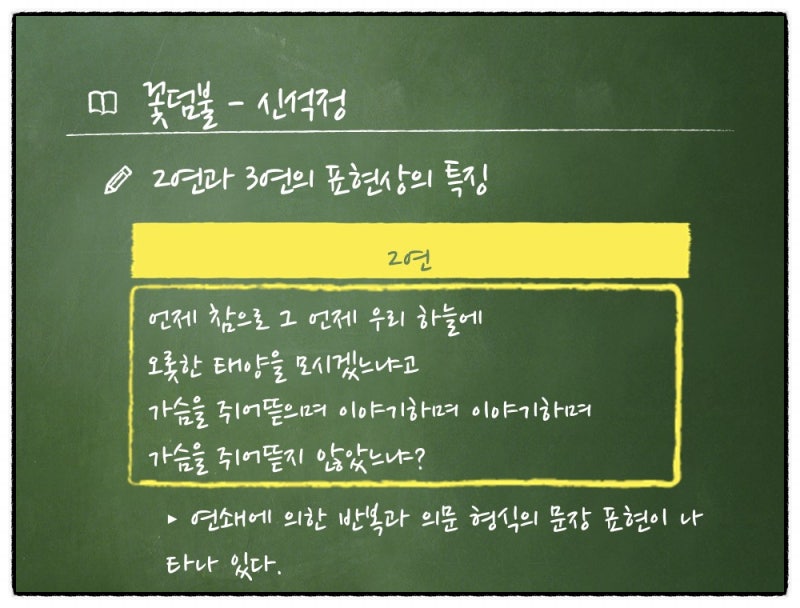 꽃덤불 - 신석정
2연과 3연의 표현상의 특징
2연
언제 참으로 그 언제 우리 하늘에
오롯한 태양을 모시겠느냐고
가슴을 쥐어뜯으며 이야기하며 이야기하며
가슴을 쥐어뜯지 않았느냐?
▸ 연쇄에 의한 반복과 의문 형식의 문장 표현이 나
타나 있다.